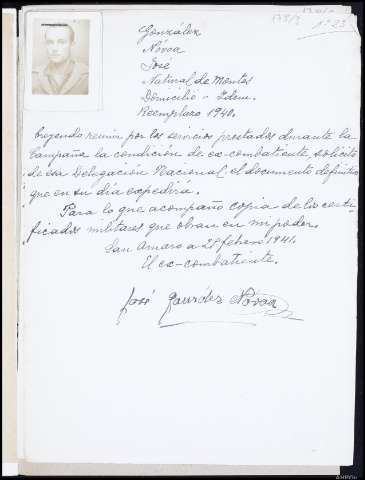 179/3
Nº 23
González
Nóvoa
José
Natural de Montes
Domicilio - Idem.
Reemplazo 1940.
Creyendo reunir por los servicios prestados durante la
Campaña la condición de ex-combatiente solicito
de esa Delegación Nacional el documento definitivo
que en su día expedirá.
Para lo que acompaño copia de los certi-
ficados militares que obran en mi poder.
San Amaro a 28 febrero 1941.
El ex-combatiente.
José González Nóvoa
AHPOu